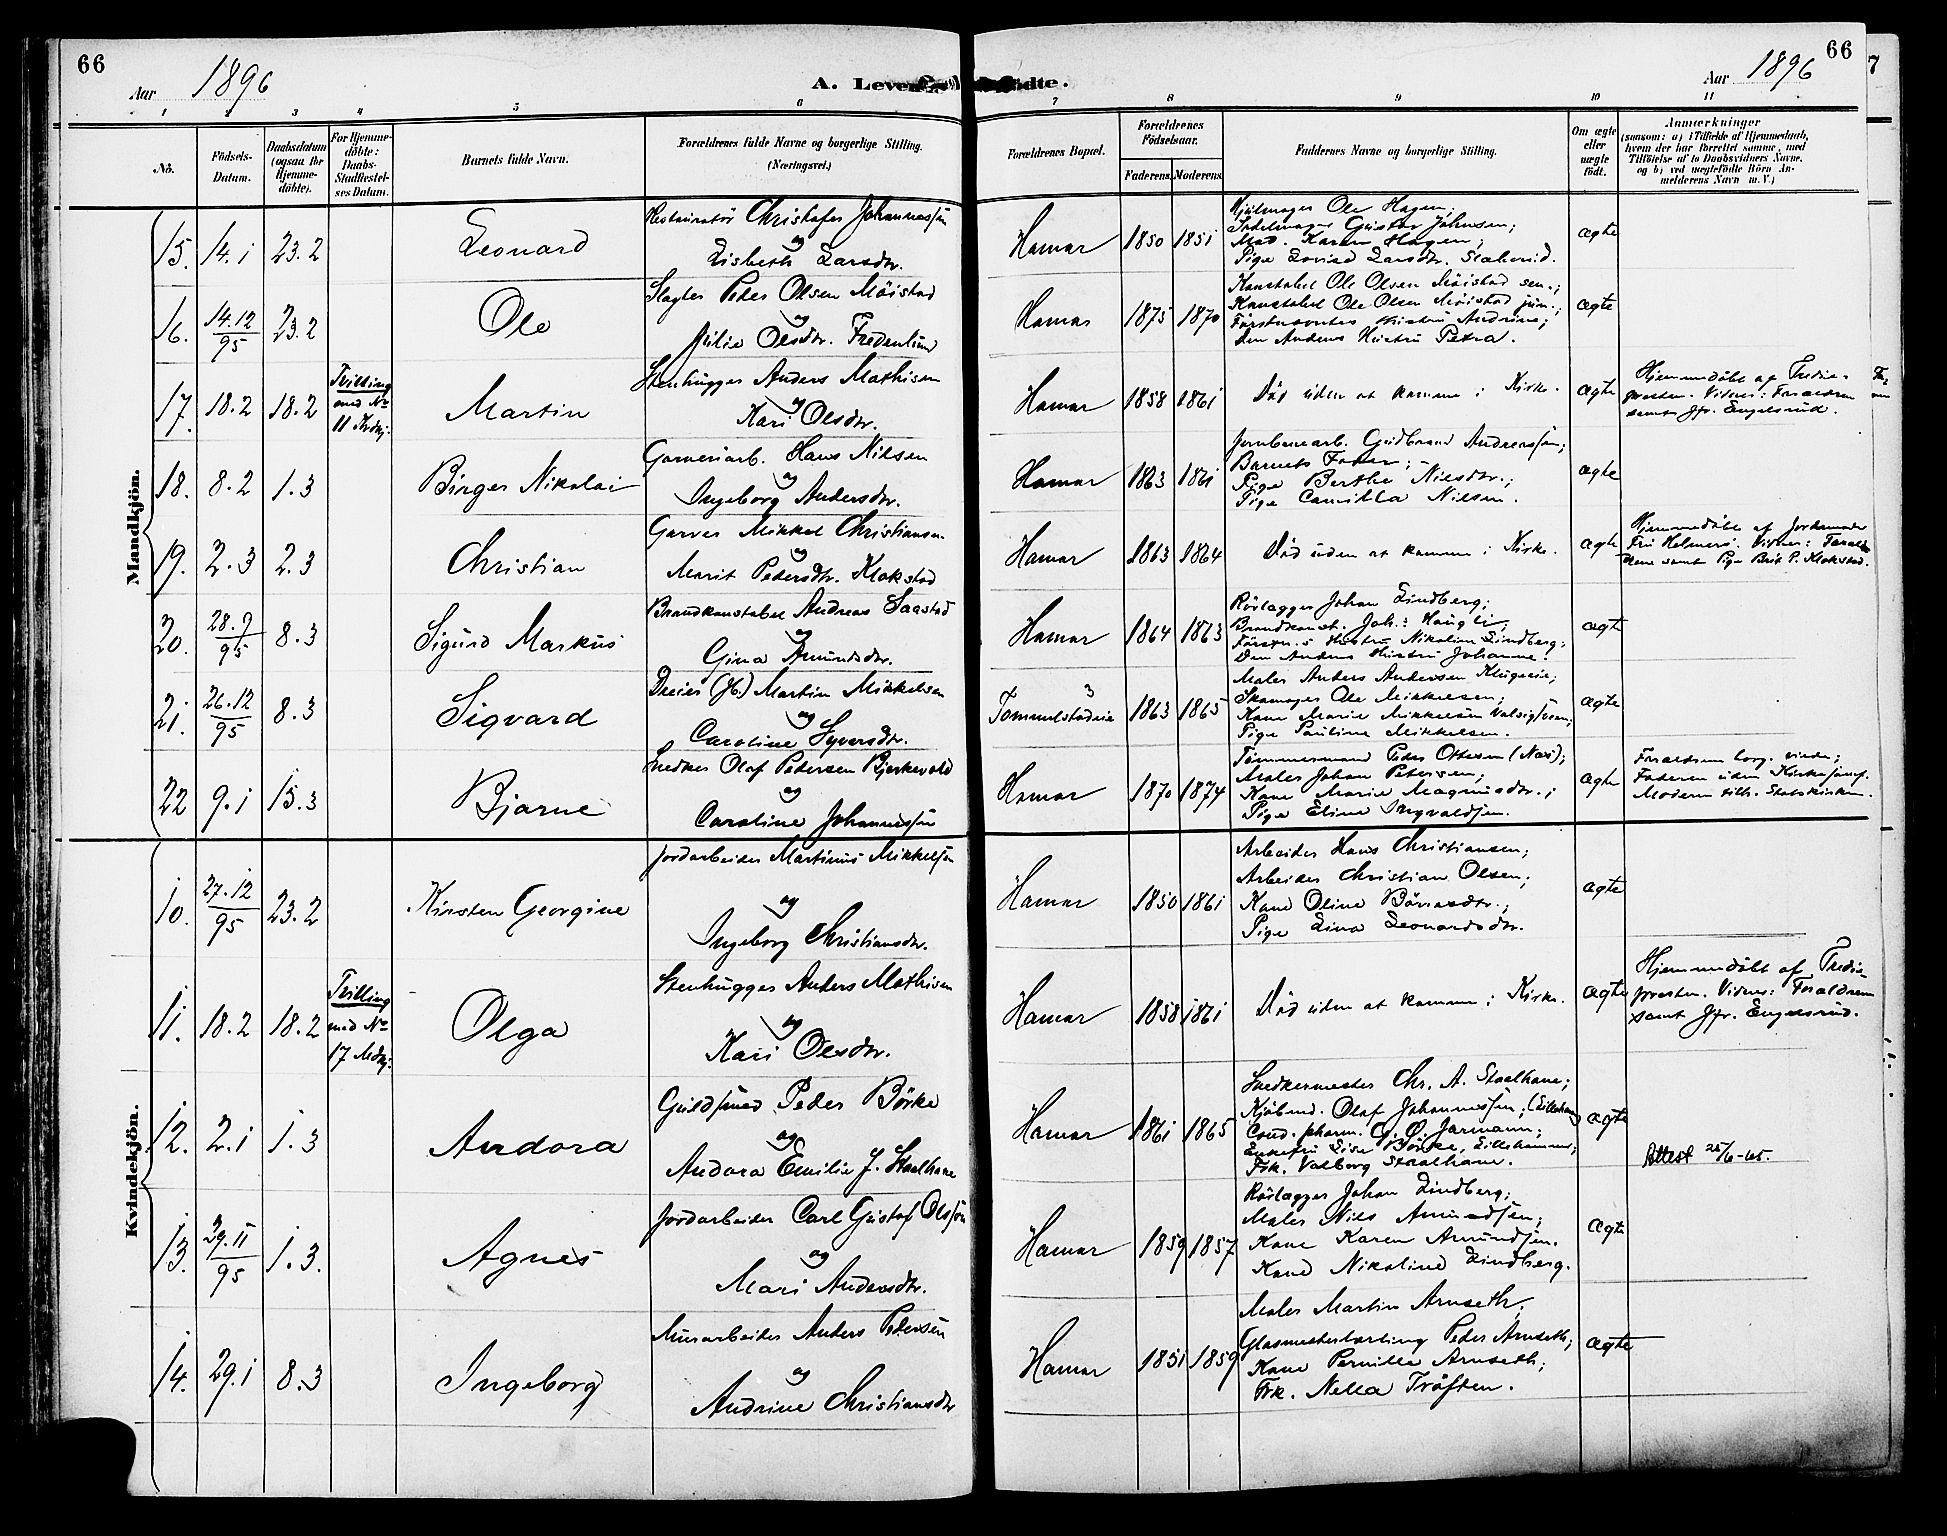 66
Aar 1896
A. Levende fødte.
66
Aar 1896
1 2 3 4 5 6 7 8 9 10 11
No.
Födsels-Datum.
Daabsdatum (ogsaa for Hjemme-döbte).
For Hjemme-döbte: Daabs-Stadfæstel-ses Datum.
Barnets fulde Navn.
Forældrenes fulde Navne og borgerlige Stilling. (Næringsvei.)
Forældrenes Bopæl.
Forældrenes Födselsaar.
Faderens. Moderens.
Faddernes Navne og borgerlige Stilling.
Om ægte eller uægte födt.
Anmærkninger
(saasom: a) i Tilfælde af Hjemmedaab, hvem der har forrettet samme, med Tilföielse af to Daabsvidners Navne, og b) ved uægtefödte Börn An-melderens Navn m. V.)
Mandkjön.
15. 14.1 23.2 Leonard
Restauratör Christofer Johannessen
og
Lisbeth Larsdtr.
Hamar 1850 1851
Hjulmager Ole Hagen;
Sadelmager Gustav Johnsen;
Mad. Karen Hagen;
Pige Lovise Larsdtr.
ægte
16. 14.12/95 23.2 Ole
Slagter Peder Olsen Möistad
og
Julie Olsdtr. Fredenlund
Hamar 1875 1870
Konstabel Ole Olsen Möistad sen.;
Konstabel Ole Olsen Möistad jun.;
Förstnævntes Hustru Andrine;
Den Andens Hustru Petra.
ægte
17. 18.2 18.2
Tvilling
med No
11 Kvdkj.
Martin
Stenhugger Anders Mathisen
og
Kari Olsdtr.
Hamar 1858 1861
Död uden at komme i Kirke.
ægte
Hjemmedöbt af Tredie-
presten. Vidner: Forældrene
samt Jfr. Engelsrud.
18. 8.2 1.3 Birger Nikolai
Garveriarb. Hans Nilsen
og
Ingeborg Andersdtr.
Hamar 1863 1861
Jernbanearb. Gudbrand Andreassen;
Barnets Fader;
Pige Berthe Nilsdtr.;
Pige Camilla Nilsen.
ægte
19. 2.3 2.3 Christian
Garver Mikkel Christiansen
og
Marit Pedersdtr. Klokstad
Hamar 1863 1864
Död uden at komme i Kirke.
ægte
Hjemmedöbt af Jordemoder
Fru Helmers. Vidner: Foræld-
rene samt Pige Brit P. Klokstad.
20. 28.9/95 8.3 Sigurd Markus
Brandkonstabel Andreas Saastad
og
Gina Amundsdtr.
Hamar 1864 1863
Rörlægger Johan Lindberg;
Brandkonst. Joh. Haugli;
Förstn.s Hustru Nikoline Lindberg;
Den Andens Hustru Johanne.
ægte
21. 26.12/95 8.3 Sigvard
Dreier (J.) Martin Mikkelsen
og
Caroline Syversdtr.
Tommelstadgt 3 1863 1865
Maler Anders Andersen;
Skomager Ole Mikkelsen;
Kone Marie Mikkelsen;
Pige Pauline Mikkelsen.
ægte
22 9.1 15.3 Bjarne
Snedker Olaf Petersen Bjerkevold
og
Caroline Johannessen
Hamar 1870 1874
Tömmermand Peder Ottesen (Næs);
Maler Johan Petersen;
Kone Marie Magnusdtr.;
Pige Eline Ingvaldsen.
ægte
Forældrene borg. viede;
Faderen uden Kirkesamf.
Moderen tilh. Statskirken.
Kvindekjön.
10. 27.12/95 23.2 Kirsten Georgine
Jordarbeider Martinus Mikkelsen
og
Ingeborg Christiansdtr.
Hamar 1850 1861
Arbeider Hans Christiansen;
Arbeider Christian Olsen;
Kone Oline Börresdtr.;
Pige Lina Leonardsdtr.
ægte
11. 18.2 18.2
Tvilling
med No
17 Mdkj.
Olga
Stenhugger Anders Mathisen
og
Kari Olsdtr.
Hamar 1858 1861
Död uden at komme i Kirke.
ægte
Hjemmedöbt af Tredie-
presten. Vidner: Forældrene
samt Jfr. Engelsrud.
12. 2.1 1.3 Andora
Guldsmed Peder Börke
og
Andora Emilie J. Staalhane
Hamar 1861 1865
Snedkermester Chr. A. Staalhane;
Kjöbmd. Olaf Johannessen; (Lillehamr)
Cand. pharm. G. O. Jarmann;
Enkefru Lise Börke, Lillehammer;
Frk. Valborg Staalhane.
ægte
Attest 25/6-65.
13. 29.11/95 1.3. Agnes
Jordarbeider Carl Gustaf Olsson
og
Mari Andersdtr.
Hamar 1859 1857
Rörlægger Johan Lindberg;
Maler Nils Amundsen;
Kone Karen Amundsen.
Kone Nikoline Lindberg.
ægte
14. 29.1 8.3 Ingeborg
Murarbeider Anders Pedersen
og
Andrine Christiansdtr
Hamar 1851 1859
Maler Martin Arnseth;
Glasmesterlærling Peder Arnseth;
Kone Pernille Arnseth;
Frk. Nella Tröften.
ægte